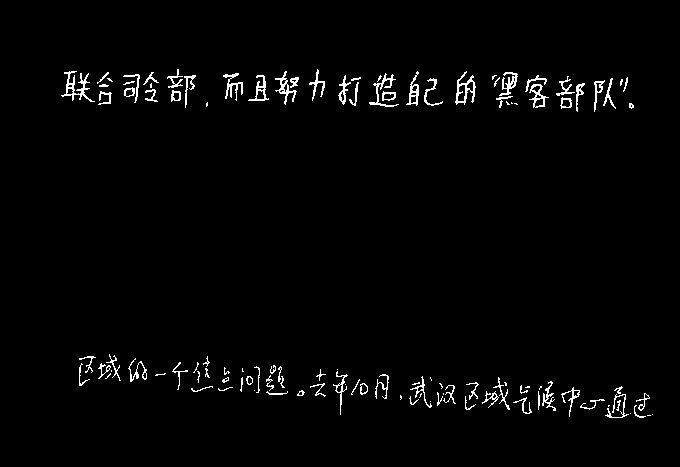 联合司令部,而且努力打造自己的“黑客部队”。
区域的一个焦点问题。去年10月,武汉区域气候中心通过